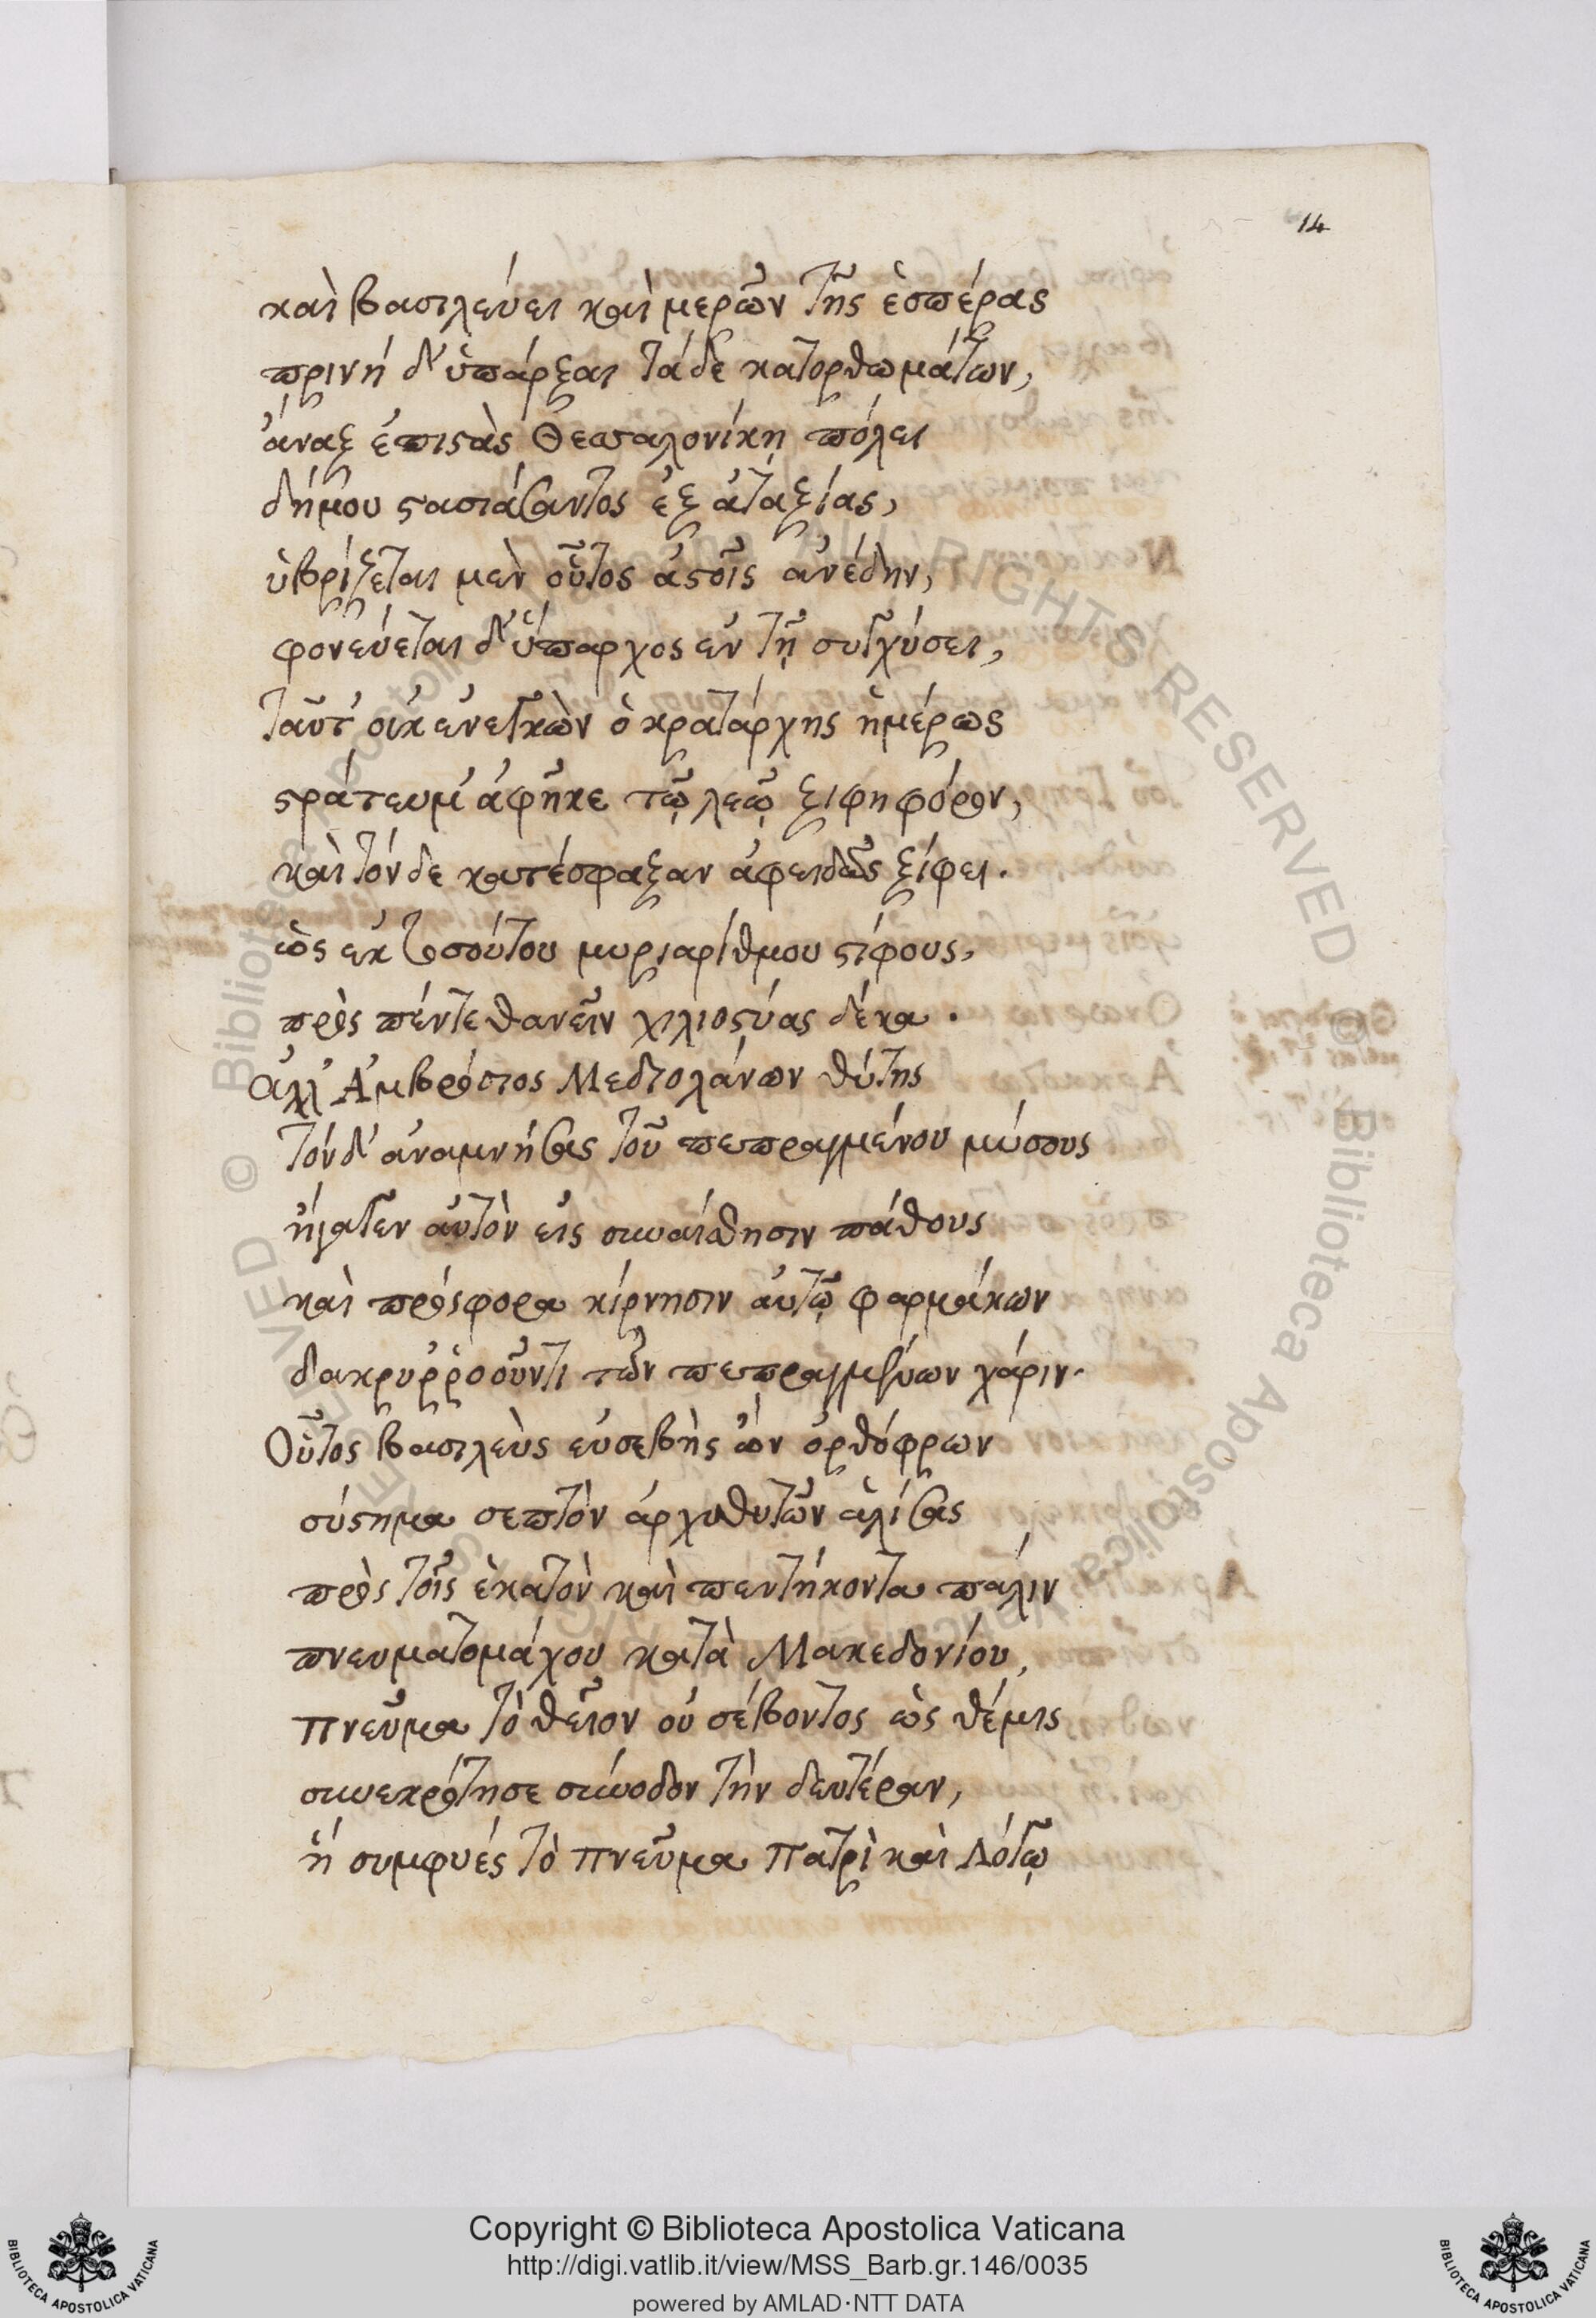 14
καὶ βασιλεύει καὶ μερῶν τῆς ἑσπέρας
πρινὴ δ' ὑπάρξαι τάδε κατορθωμάτων,
ἄναξ ἐπιστὰς Θεσσαλονίκῃ πόλει
δήμου στασιάσαντος ἐξ ἀταξίας,
ὑβρίζεται μὲν οὗτος ἀστοῖς ἀνέδην,
φονεύεται δ' ὕπαρχος ἐν τῇ συγχύσει,
ταῦτ' οὐκ ἐνεγκὼν ὁ κρατάρχης ἡμέρως
στράτευμ' ἀφῆκε τῷ λεῷ ξιφηφόρον,
καὶ τόνδε κατέσφαξαν ἀφειδῶς ξίφει.
ὡς ἐκ τοσούτου μυριαρίθμου στίφους,
πρὸς πέντε θανεῖν χιλιοστύας δέκα.
Ἀλλ' Ἀμβρόσιος Μεδιολάνων θύτης
τόνδ' ἀναμνήσας τοῦ πεπραγμένου μύσους
ἤγαγεν αὐτὸν εἰς συναίσθησιν πάθους
καὶ πρόσφορα κίρνησιν αὐτῷ φαρμάκων
δακρυῤῥοοῦντι τῶν πεπραγμένων χάριν.
Οὗτος βασιλεὺς εὐσεβὴς ὢν ὀρθόφρων
σύστημα σεπτὸν ἀρχιθυτῶν ἁλίσας
πρὸς τοῖς ἑκατὸν καὶ πεντήκοντα πάλιν
πνευματομάχου κατὰ Μακεδονίου,
πνεῦμα τὸ θεῖον οὐ σέβοντος ὡς θέμις
συνεκρότησε σύνοδον τὴν δευτέραν,
ἣ συμφυὲς τὸ πνεῦμα Πατρὶ καὶ Λόγῳ
Copyright © Biblioteca Apostolica Vaticana
http://digi.vatlib.it/view/MSS_Barb.gr.146/0035
powered by AMLAD·NTT DATA